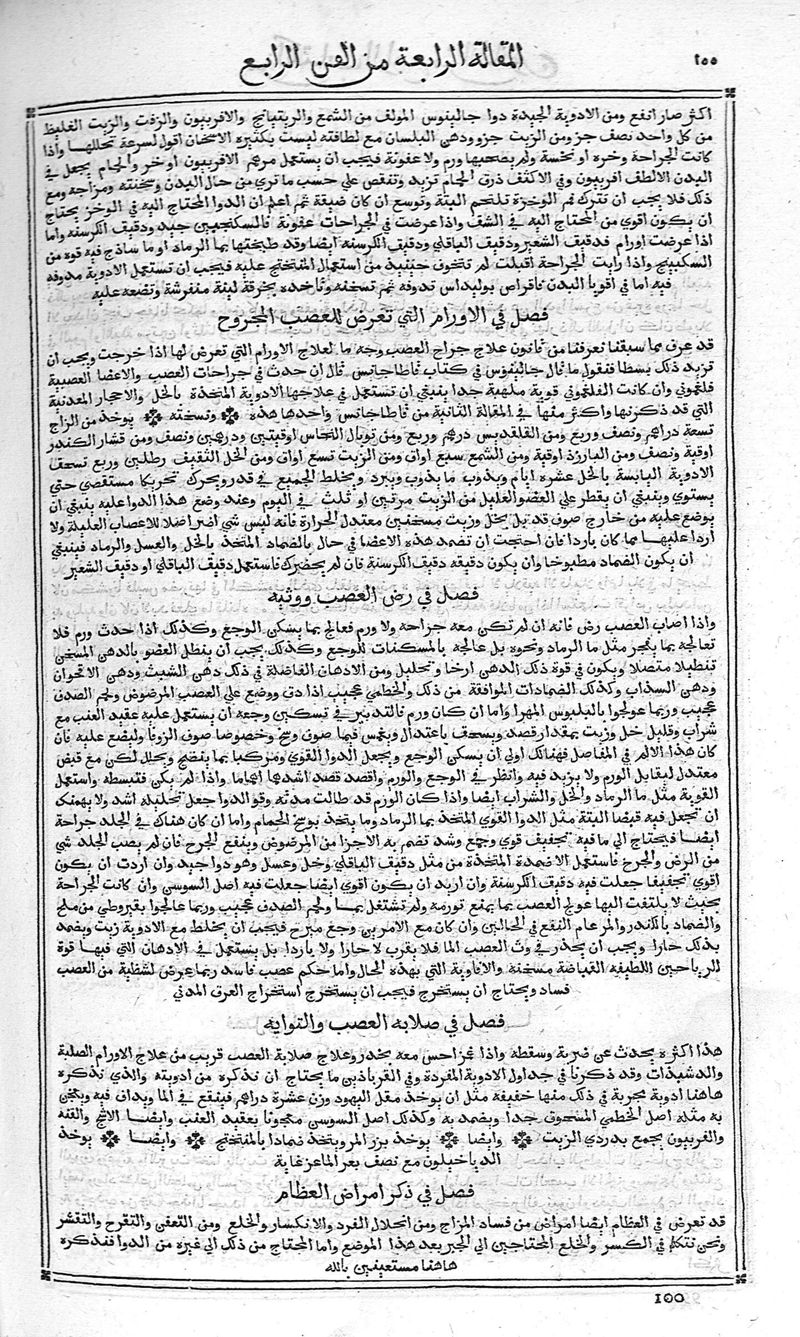 ١٥٥ المقالة الرابعة من الفن الرابع
اكثر صار انفع ومن الادوية الجيدة دوا جالينوس المولف من الشمع والريتيانج والافربيون والزفت والزيت الغليظ
من كل واحد نصف جز ومن الزيت جزو ودهن البلسان مع لطافته ليست يكثيره الاسخان اقول لسرعة تحللها واذا
كانت الجراحة وخره او نخسة ولم يصحبها ورم ولا عفونة فيجب ان يستعمل مرهم الافربيون او خر والحام يجعل في
البدن الالطف افربيون وفي الاكثف ذرق الحام تزيد وتنقص علي حسب ما تري من حال البدن وسخنته ومزاجه ومع
ذلك فلا يجب ان تترك فم الوخزة تلتحم البتة وتوسع ان كان ضيقة ثم اعلم ان الدوا المحتاج اليه في الوخز يحتاج
ان يكون اقوي من المحتاج اليه في الشف واذا عرضت في الجراحات عفونة فالسكنجبين جيد ودقيق الكرسنه واما
اذا عرضت اورام فدقيق الشعير ودقيق الباقلي ودقيق الكرسنه ايضا وقد طبختها بما الرماد او ما ساذج فيه قوة من
السكبينج واذا رايت الجراحة اقبلت لم تتخوف حينيذ من استعمال المنتخج عليه فيجب ان تستعمل الادوية مدوفه
فيه اما في اقويا البدن فاقراص بوليداس تدوفه ثم تسخنه وتاخذه بخرقة لينة منفرشة وتضعه عليه
فصل في الاورام التي تعرض للعصب المجروح
قد عرف بما سبقنا تعرفنا من قانون علاج جراج العصب وجه ما لعلاج الاورام التي تعرض لها اذا خرجت ويجب ان
تزيد ذلك بسطا فنقول ما قال جالينوس في كتاب قاطاجانس قال ان حدث في جراحات العصب والاعضا العصبية
فلغموني وان كانت الفلغموني قوية ملهبة جدا ينبغي ان تستعمل في علاجها الادوية المتخذة بالخل والاحجار المعدنية
التي قد ذكرتها واكثر منها في المقالة الثانية من قاطاجانس واحدها هذه ونسخته يوخذ من الزاج
تسعة دراهم ونصف وربع ومن القلقديس درهم وربع ومن توبال النحاس اوقيتين ودرهمين ونصف ومن قشار الكندر
اوقية ونصف ومن البارزد اوقية ومن الشمع سبع اواق ومن الزيت تسع اواق ومن الخل الثقيف رطلين وربع تسحف
الادوية اليابسة بالخل عشره ايام ويذوب ما يذوب ويبرد ويخلط الجميع في قدر ويحرك تحريكا مستقصي حتي
يستوي وينبغي ان يقطر علي العضو العليل من الزيت مرتين او ثلث في اليوم وعند وضع هذا الدوا عليه ينبغي ان
يوضع عليه من خارج صوف قد بل بخل وزيت مسخنين معتدل الحرارة فانه ليس شي اضر اصلا للاعصاب العليلة ولا
اردا عليها مما كان باردا فان احتجت ان تضمد هذه الاعضا في حال بالضماد المتخذ بالخل والعسل والرماد فينبغي
ان يكون الضماد مطبوخا وان يكون دقيقه دقيق الكرسنة فان لم يحضرك فاستعمل دقيق الباقلي او دقيق الشعير
فصل في رض العصب ووثيه
واذا اصاب العصب رض فانه ان لم تكن معه جراحه ولا ورم فعالج بما يسكن الوجع وكذلك اذا حدث ورم فلا
تعالجه بما يفجر مثل ما الرماد ونحوه بل عالجه بالمسكنات للوجع وكذلك يجب ان ينطل العضو بالدهن المسخن
تنطيلا متصلا ويكون في قوة ذلك الدهن ارخا وتحليل ومن الادهان الفاضلة في ذلك دهن الشبث ودهن الاقحوان
ودهن السذاب وكذلك الضمادات الموافقة من ذلك والخطمي عجيب اذا دق ووضع علي العصب المرضوض ولحم الصدف
عجيب وربما عولجوا بالبلبوس المهرا واما ان كان ورم فالتدبير في تسكين وجعه ان يستعمل عليه عقيد العنب مع
شراب وقليل خل وزيت بمقدار قصد ويسخف باعتدال ويغمس فيها صوف وسخ وخصوصا صوف الزوفا وليضع عليه فان
كان هذا الالم في المفاصل فهنالك اولي ان يسكن الوجع ويجعل الدوا القوي ومركبا بما ينضج ويحلل لكن مع قبض
معتدل ليقابل الورم ولا يزيد فيه وانظر في الوجع والورم واقصد قصد اشدها اهماما واذا لم يكن فتبسطه واستعمل
القوية مثل ما الرماد والخل والشراب ايضا واذا كان الورم قد طالت مدته وقو الدوا جعل تحليله اشد ولا يهمنك
ان تجعل فيه قبضا البتة مثل الدوا القوي المتخذ بما الرماد وما يتخذ بوسخ الحمام واما ان كان هناك في الجلد جراحة
ايضا فيحتاج الي ما فيه تجفيف قوي وجمع وشد تضم به الاجزا من المرضوض وينفع للجرح فان لم يصب الجلد شي
من الرض والجرح فاستعمل الاضمدة المتخذة من مثل دقيق الباقلي وخل وعسل وهو دوا جيد وان اردت ان يكون
اقوي تجفيفا جعلت فيه دقيق الكرسنة وان اريد ان يكون اقوي ايضا جعلت فيه اصل السوسي وان كانت الجراحة
بحيث لا يلتفت اليها عولج العصب بما يمنع تورمه ولم تشتغل بها ولحم الصدف عجيب وربما عالجوا بقيروطي من ملح
والضماد بالكندر والمر عام النفع في الحالين وان كان مع الامرين وجع مبرح فيجب ان يخلط مع الادوية زيت ويضمد
بذلك حارا ويجب ان يحذر في وث العصب الما فلا يقرب لا حارا ولا باردا بل يستعمل في الادهان التي فيها قوة
للرياحين اللطيفه القباضة مسخنه والافاوية التي بهذه الحال واما حكم عصب فاسد ربما عرض لشظية من العصب
فساد ويحتاج ان يستخرج فيجب ان يستخرج استخراج العرق المدني
فصل في صلابة العصب والتوايه
هذا اكثره يحدث عن ضربة وسقطه واذا غمز احس معه بخدر وعلاج صلابة العصب قريب من علاج الاورام الصلبة
والدشبذات وقد ذكرنا في جداول الادوية المفردة وفي القرباذين ما يحتاج ان نذكره من ادويته والذي نذكره
هاهنا ادوية مجربة في ذلك منها خفيفه مثل ان يوخذ مقل اليهود وزن عشرة دراهم فينقع في الما ويداف فيه ويعجن
به مثله اصل الخطمي المسحوق جدا ويضمد به وكذلك اصل السوسي معجونا بعقيد العنب وايضا الاشج والقنه
والفربيون يجمع بدردي الزيت وايضا يوخذ بزر المرو يتخذ ضمادا بالمنتخج وايضا يوخذ
الدياخيلون مع نصف بعر الماعز غاية
فصل في ذكر امراض العظام
قد تعرض في العظام ايضا امراض من فساد المزاج ومن انحلال الفرد والانكسار والخلع ومن التعفن والتقرح والتقشر
ونحن نتكلم في الكسر والخلع المحتاجين الي الجبر بعد هذا الموضع واما المحتاج من ذلك الي غيره من الدوا فنذكره
هاهنا مستعينين بالله
155